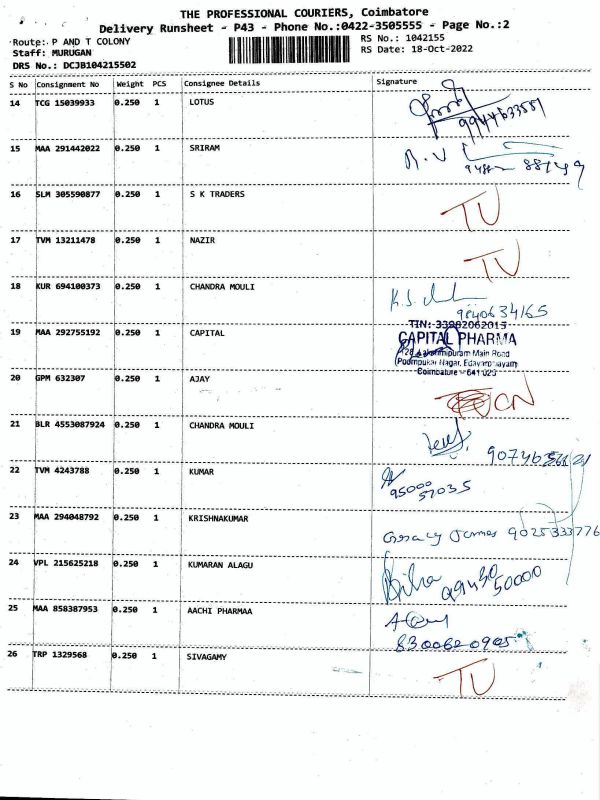 THE PROFESSIONAL COURIERS, Coimbatore
Delivery Runsheet - P43 - Phone No.:0422-3505555 - Page No.:2
Route:. P AND T COLONY RS No.: 1042155
Staff: MURUGAN RS Date: 18-Oct-2022
DRS No.: DCJB104215502
S No Consignment No Weight PCS Consignee Details Signature
14 TCG 15039933 0.250 1 LOTUS
15 MAA 291442022 0.250 1 SRIRAM R.V
16 SLM 305590877 0.250 1 S K TRADERS TU
17 TVM 13211478 0.250 1 NAZIR TU
18 KUR 694100373 0.250 1 CHANDRA MOULI K.S.
9840634165
TIN: 33982062013
19 MAA 292755192 0.250 1 CAPITAL CAPITAL PHARMA
Main Road
Nagar,
Coimbature - 641 029
20 GPM 632307 0.250 1 AJAY CN
21 BLR 4553087924 0.250 1 CHANDRA MOULI
22 TVM 4243788 0.250 1 KUMAR
95000
57035
23 MAA 294048792 0.250 1 KRISHNAKUMAR James 9025333776
24 VPL 215625218 0.250 1 KUMARAN ALAGU
50000
25 MAA 858387953 0.250 1 AACHI PHARMAA
8300620905
26 TRP 1329568 0.250 1 SIVAGAMY TU